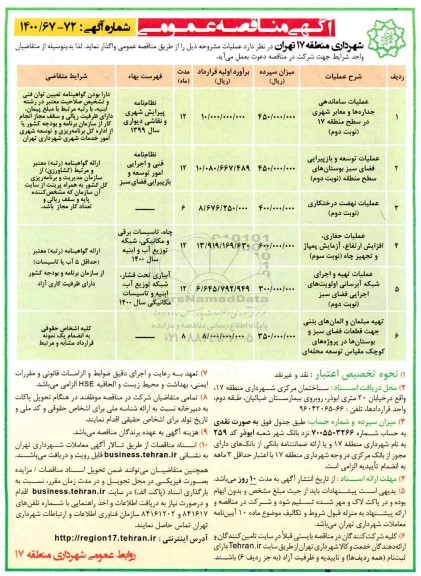 آگهی مناقصه عمومی
شماره آگهی: ۷۲-۱۴۰۰/۶۷
شهرداری منطقه ۱۷ تهران در نظر دارد عملیات مشروحه ذیل را از طریق مناقصه عمومی واگذار نماید. لذا بدینوسیله از متقاضیان
واجد شرایط جهت شرکت در مناقصه دعوت بعمل می‌آید.
ردیف
شرح عملیات
میزان سپرده (ریال)
برآورد اولیه قرارداد (ریال)
مدت ماه
فهرست بهاء
شرایط متقاضی
۱
عملیات ساماندهی
جداره‌ها و معابر شهری
در سطح منطقه ۱۷
(نوبت دوم)
۴۵۰/۰۰۰/۰۰۰
۱۰/۰۰۰/۰۰۰/۰۰۰
۱۲
نظام‌نامه
پیرایش شهری
و نقاشی دیواری
سال ۱۳۹۹
دارا بودن گواهینامه تعیین توان فنی
و تشخیص صلاحیت معتبر در رشته
ابنیه، با رتبه مرتبط با مبلغ پیمان،
دارای ظرفیت ریالی و سقف مجاز انجام
کار از سازمان برنامه و بودجه کشور یا
از اداره کل برنامه‌ریزی و توسعه شهری
امور خدمات شهری شهرداری تهران
۲
عملیات توسعه و بازپیرایی
فضای سبز بوستان‌های
سطح منطقه (نوبت دوم)
۴۵۰/۰۰۰/۰۰۰
۱۰/۰۸۰/۶۶۷/۴۸۹
۱۲
نظام‌نامه
فنی و اجرایی
امور توسعه و
بازپیرایی فضای سبز
ارائه گواهینامه (رتبه) معتبر
و مرتبط (کشاورزی) از
سازمان مدیریت و برنامه‌ریزی
کل کشور به همراه پرینت از سایت
آن سازمان که مشخص‌کننده
پایه و سقف ریالی و
تعداد کار مجاز باشد.
۳
عملیات نهضت درختکاری
(نوبت دوم)
۴۰۰/۰۰۰/۰۰۰
۸/۶۷۶/۲۵۰/۰۰۰
۶
۴
عملیات حفاری،
افزایش ارتفاع، آزمایش پمپاژ
و تجهیز چاه (نوبت سوم)
۶۰۰/۰۰۰/۰۰۰
۱۳/۹۱۹/۱۶۹/۶۳۰
۱۲
چاه، تاسیسات برقی
و مکانیکی، شبکه
توزیع آب و ابنیه
سال ۱۴۰۰
ارائه گواهینامه (رتبه) معتبر
(حداقل ۵ آب یا تاسیسات)
از سازمان برنامه و بودجه کشور
دارای ظرفیت کاری آزاد
۵
عملیات تهیه و اجرای
شبکه آبرسانی اولویت‌های
اجرایی فضای سبز
(نوبت دوم)
۳۰۰/۰۰۰/۰۰۰
۶/۶۴۵/۷۹۲/۹۴۹
۱۲
آبیاری تحت فشار،
شبکه توزیع آب،
ابنیه و تاسیسات
مکانیکی سال ۱۴۰۰
۶
تهیه مبلمان و المان‌های بتنی
جهت قطعات فضای سبز و
بوستان‌ها در پروژه‌های
کوچک مقیاس توسعه محله‌ای
۳۵۰/۰۰۰/۰۰۰
۸/۰۰۰/۰۰۰/۰۰۰
۸
کلیه اشخاص حقوقی
به انضمام یک نمونه
قرارداد مشابه و مرتبط
۱) نحوه تخصیص اعتبار: نقد و غیرنقد
۲) محل دریافت اسناد: ساختمان مرکزی شهرداری منطقه ۱۷،
واقع در خیابان ۲۰ متری ابوذر، روبروی بیمارستان ضیائیان، طبقه دوم،
واحد قراردادها، تلفن: ۶۶-۹۶۰۴۲۰۶۵
۳) میزان سپرده و شماره حساب: طبق جدول فوق به صورت نقدی
به حساب شماره ۷۰۰۵۵۰۳۲۶۶ نزد بانک شهر شعبه ابوذر کد ۲۵۹
به نام شهرداری منطقه ۱۷ و یا ارائه ضمانتنامه بانکی از بانک‌های دارای
مجوز از بانک مرکزی در وجه شهرداری منطقه ۱۷ با اعتبار حداقل ۳ ماهه
به انضمام تأییدیه الزامی است.
۴) مهلت ارائه اسناد: از تاریخ انتشار آگهی به مدت ۱۰ روز می‌باشد.
۵) بدیهی است پیشنهادات باید از حیث مبلغ مشخص و بدون ابهام
بوده و در پاکت لاک و مهر شده تسلیم شود و شرکت در مناقصه و
ارائه پیشنهاد به منزله قبول شروط و تکالیف موضوع ماده ۱۰ آئین‌نامه
معاملات شهرداری تهران می‌باشد.
۶) کلیه شرکت‌کنندگان در مناقصه بایستی قبلاً در سایت تامین‌کنندگان و
ارائه‌دهندگان خدمت و کالا شهرداری تهران از طریق سایت Tehran.ir دارای
ثبت‌نام (همه ردیف‌ها) و تاییدیه و ظرفیت آزاد (به جز ردیف ۶) باشند.
۷) تعهد به رعایت و اجرای دقیق ضوابط و الزامات قانونی و مقررات
ایمنی، بهداشت و محیط زیست و الحاقیه HSE الزامی می‌باشد.
۸) تمامی متقاضیان شرکت در مناقصه موظفند در هنگام تحویل پاکات
به دبیرخانه نسبت به ارائه شناسه ملی برای اشخاص حقوقی و کد ملی و
تاریخ تولد برای اشخاص حقیقی اقدام نمایند.
۹) هزینه آگهی به عهده برندگان مناقصه می‌باشد.
۱۰) اسناد مناقصات از طریق تالار آگهی معاملات شهرداری تهران
به نشانی business.tehran.ir قابل رویت و دریافت می‌باشند.
همچنین متقاضیان می‌توانند ضمن تحویل اسناد مناقصات / مزایده
بصورت فیزیکی در محل تحویل و در مدت زمان مقرر، نسبت به
بارگذاری اسناد (پاکت الف) در سایت business.tehran.ir اقدام
و در صورت نیاز به دریافت اطلاعات و اخذ راهنمایی با شماره تلفن‌های
۸۴۱۶۱۷ و ۸۴۱۶۱۲۰۲ سازمان فناوری اطلاعات و ارتباطات شهرداری
تهران تماس حاصل نمایند.
آدرس اینترنتی: http://region17.tehran.ir
روابط عمومی شهرداری منطقه ۱۷